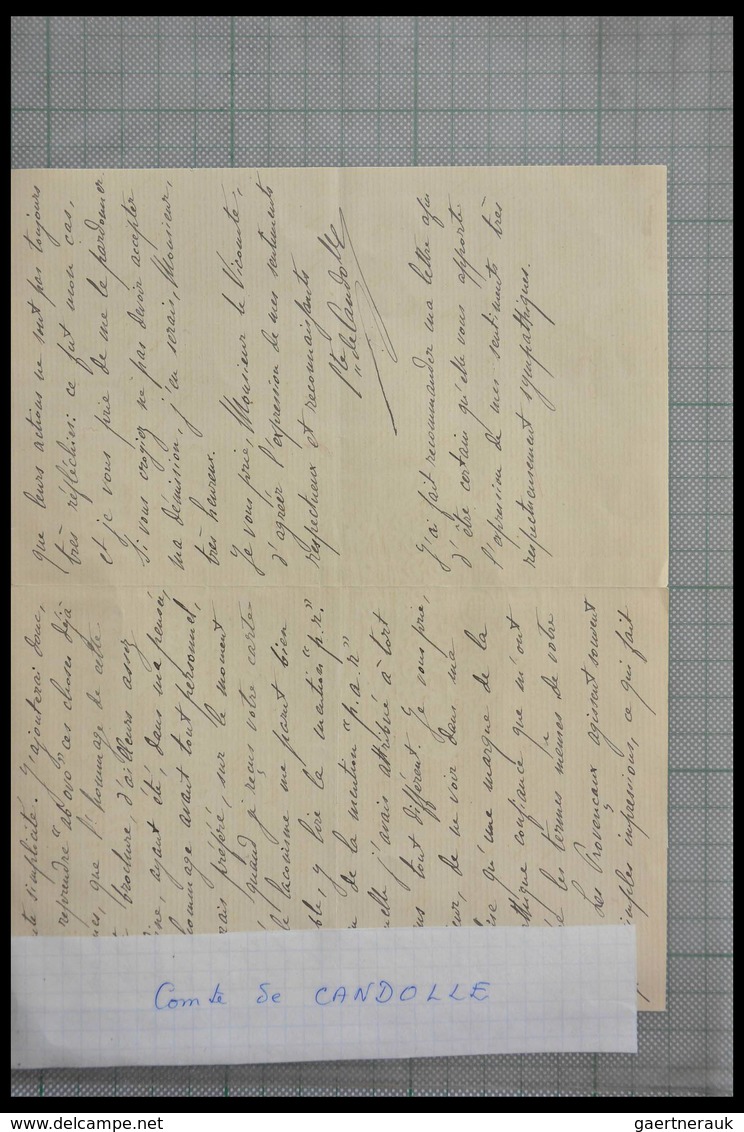 te simplicité. J'ajouterai donc,
reprendre "ab ovo" ces choses déjà
ues, que l'hommage de cette
brochure, d'ailleurs assez
ine, ayant été, dans ma pensée,
hommage avant tout personnel,
rais préféré, sur le moment
quand je reçus votre carte
le laconisme me parut bien
ble, y lire la mention "p.r."
de la mention "p.a.r"
elle j'avais attribué à tort
ns tout différent. Je vous prie,
ieur, de ne voir dans ma
qu'une marque de la
thique confiance que m'ont
les termes mêmes de votre
Les Provençaux agissent souvent
simples impressions, ce qui fait
que leurs actions ne sont pas toujours
très réfléchies: ce fut mon cas,
et je vous prie de me le pardonner
Si vous croyiez ne pas devoir accepter
ma démission, j'en serais, Monsieur,
très heureux.
Je vous prie, Monsieur le Vicomte,
d'agréer l'expression de mes sentiments
respectueux et reconnaissants
Cte de Candolle
J'ai fait recommander ma lettre afin
d'être certain qu'elle vous apporte
l'expression de mes sentiments très
respectueusement sympathiques.
Comte de CANDOLLE
gaertnerauk